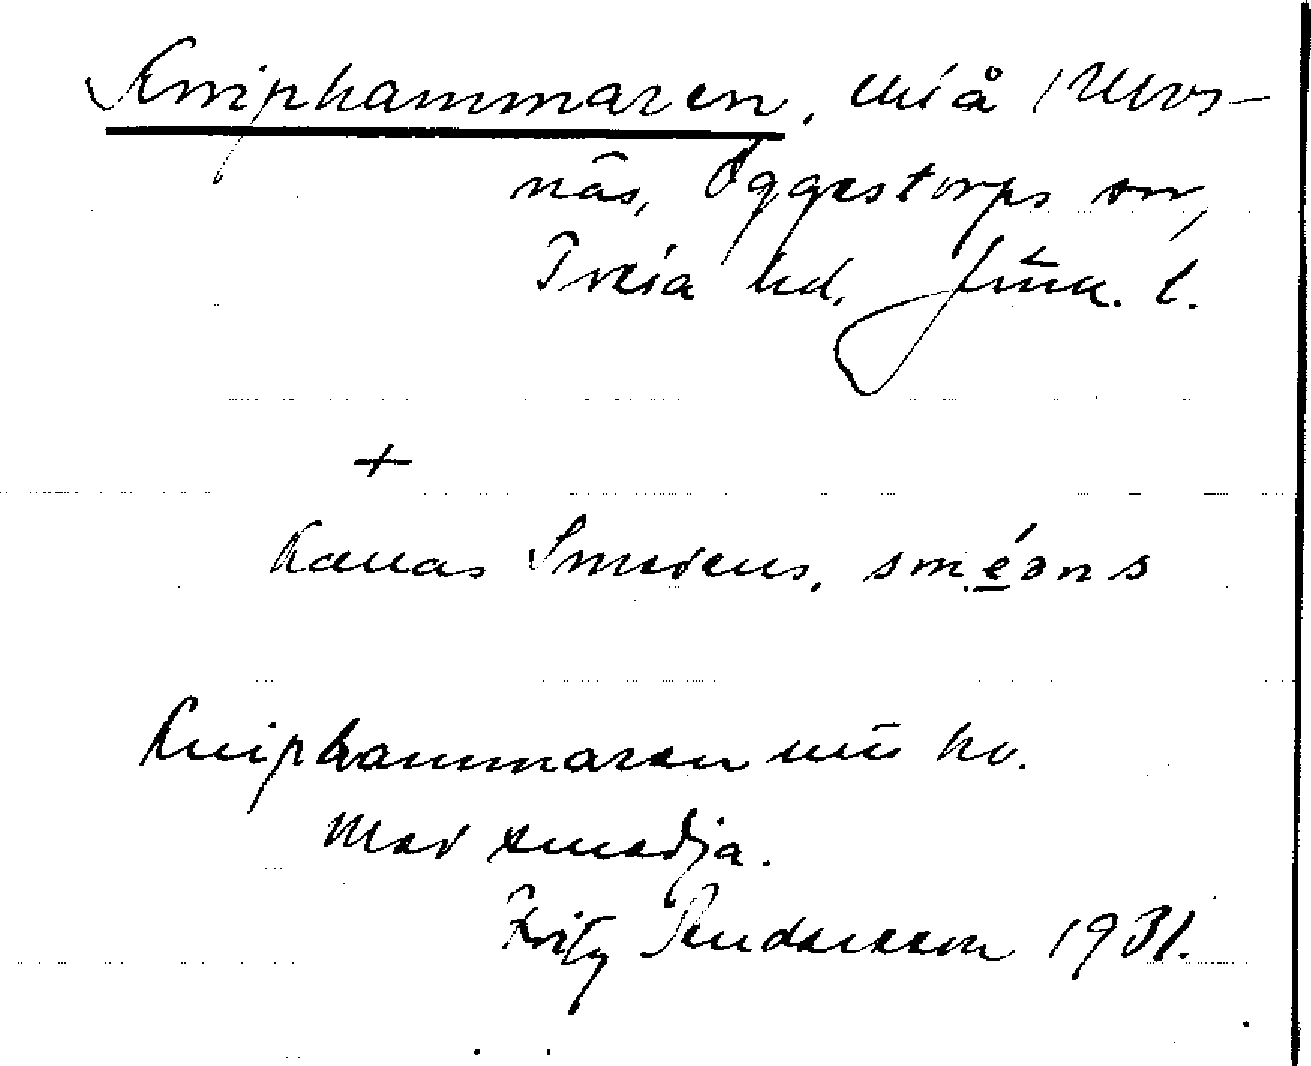 Kniphammaren, vid å / Mos-
näs, Öggestorps sn,
Tveta hd. Jönk. l.
+
kallas Smedens, sméǝns
Kniphammaren nu kv.
med smedja.
Fritz Andersson 1931.